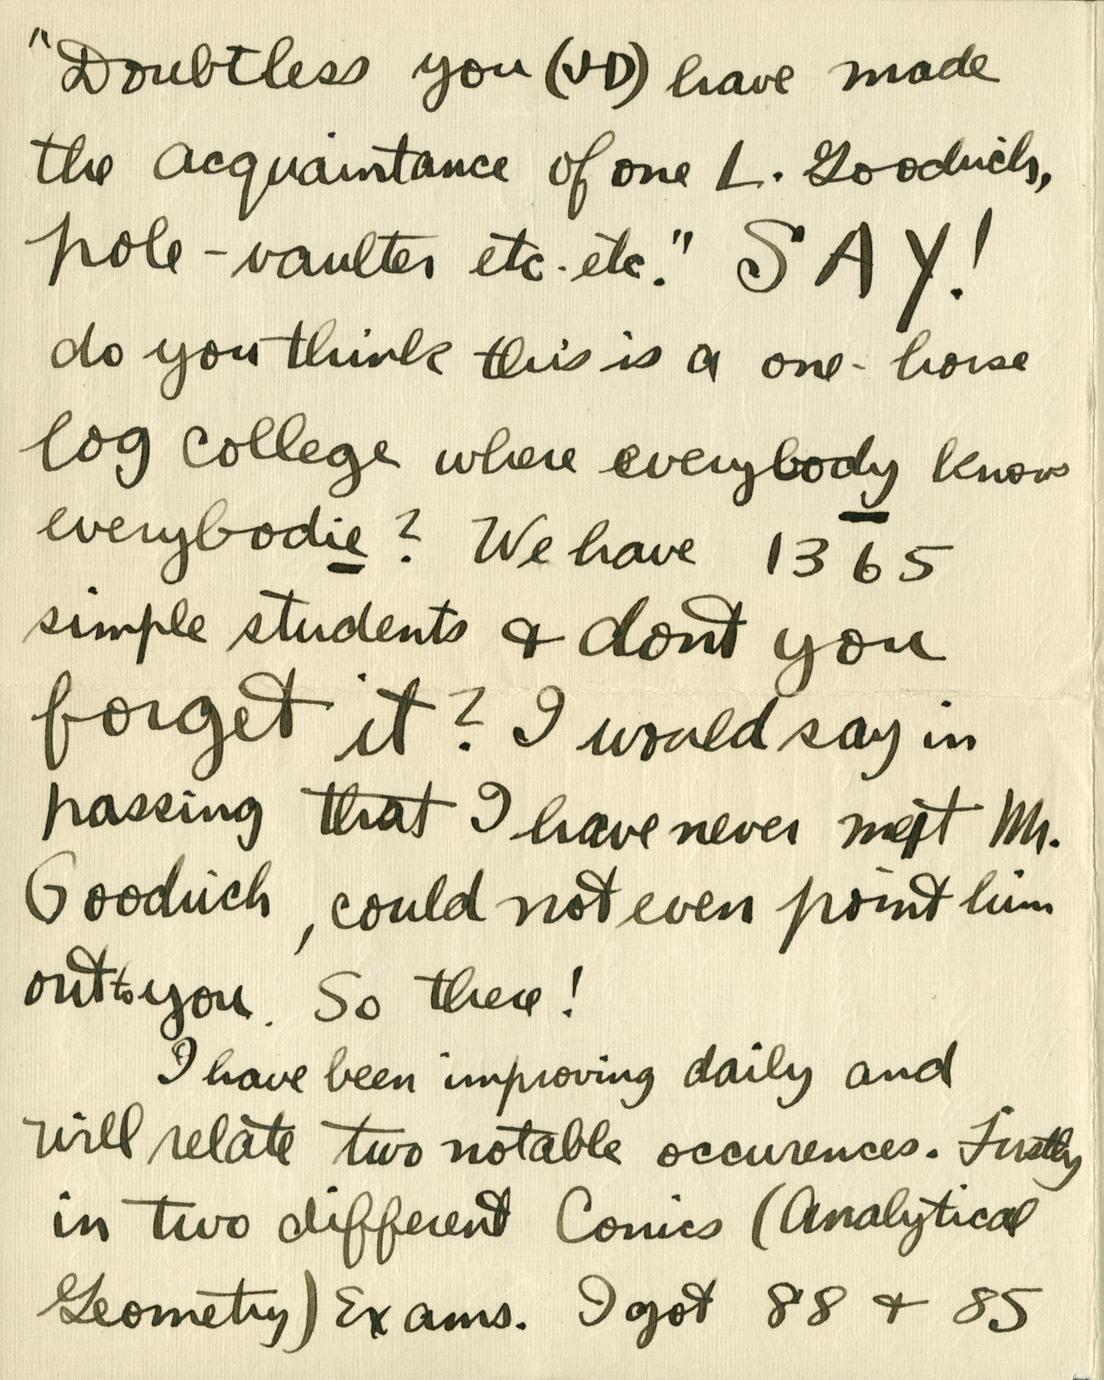 "Doubtless you (JD) have made
the acquaintance of one L. Goodrich,
pole-vaulter etc. etc." SAY!
do you think this is a one-horse
log college where everybody knows
everybodie? We have 1365
simple students & dont you
forget it? I would say in
passing that I have never met Mr.
Goodrich, could not even point him
out to you. So there!
I have been improving daily and
will relate two notable occurences. Firstly
in two different Conics (Analytical
Geometry) Exams. I got 88 & 85